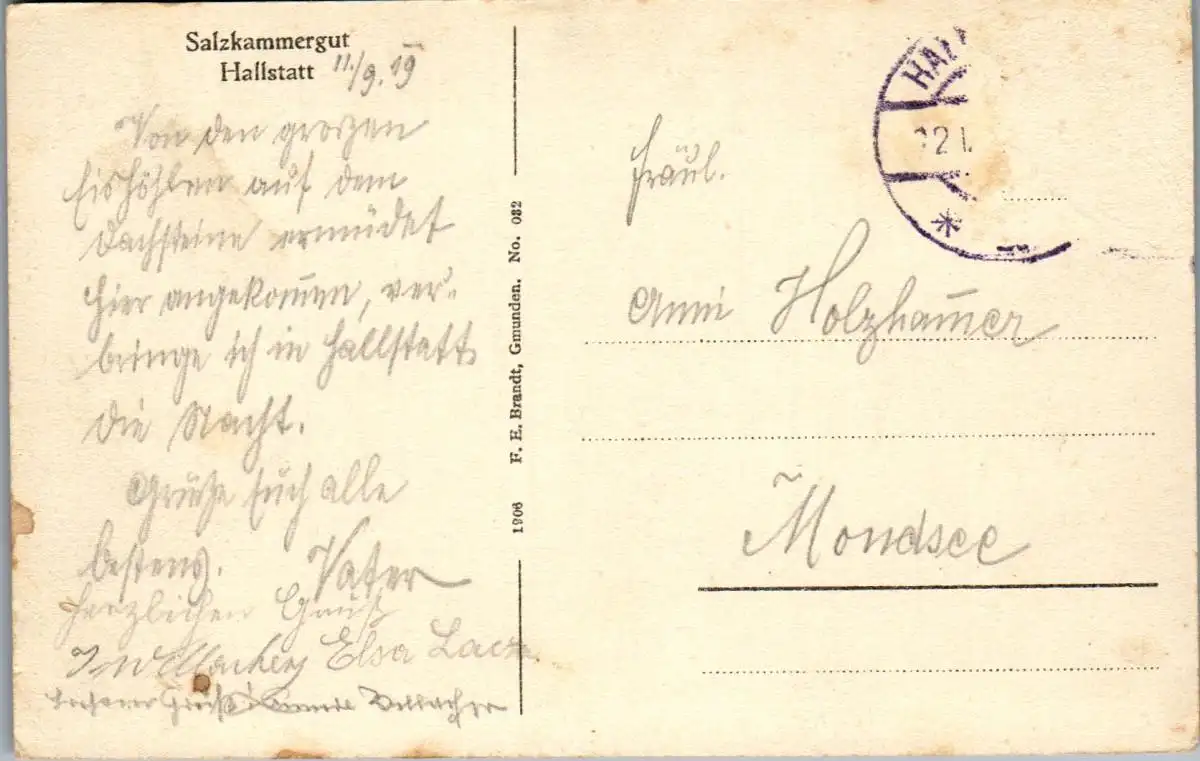 Salzkammergut
Hallstatt 11./9. 19
Von den groszen
Eishöhlen auf dem
Dachsteine ermüdet
hier angekom̄en, ver-
bringe ich in Hallstatt
die Nacht.
Grüße Euch alle
bestens. Vater
Herzlichen Gruß
Elsa
1906 F. E. Brandt, Gmunden. No. 082
HAL
12.
Fräul.
Anni Holzham̄er
Mondsee